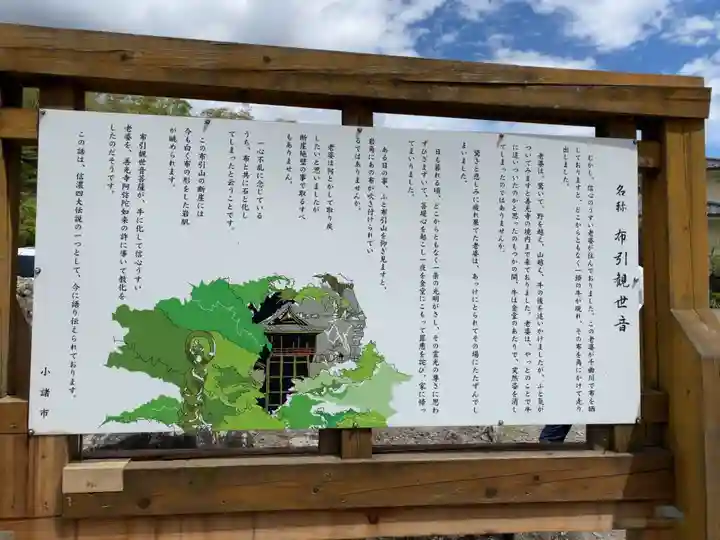 名称 布引観世音
むかし、信心のうすい老婆が住んでおりました。この老婆が千曲川で布を晒
しておりますと、どこからともなく一頭の牛が現れ、その布を角にかけて走り
出しました。
老婆は、驚いて、野を越え、山越え、牛の後を追いかけましたが、ふと気が
ついてみますと善光寺の境内まで来ておりました。老婆は、やっとのことで牛
に追いついたのかと思ったのもつかの間、牛は金堂のあたりで、突然姿を消し
てしまったのではありませんか。
驚きと悲しみに疲れ果てた老婆は、あっけにとられてその場にたたずんでし
まいました。
日も暮れる頃、どこからともなく一条の光明がさし、その霊光の尊さに思わ
ずひざまずいて、菩提心を起こし一夜を金堂にこもって罪障を詫び、家に帰っ
てまいりました。
ある日の事、ふと布引山を仰ぎ見ますと、
岩角にあの布が吹き付けられてい
るではありませんか。
老婆は何とかして取り戻
したいと思いましたが
断崖絶壁の事で取るすべ
もありません。
一心不乱に念じている
うち、布と共に石と化し
てしまったと云うことです。
この布引山の断崖には
今も白く布の形をした岩肌
が眺められます。
布引観世音菩薩が、牛に化して信心うすい
老婆を、善光寺阿弥陀如来の許に導いて教化を
したのだそうです。
この話は、信濃四大伝説の一つとして、今に語り伝えられております。
小諸市